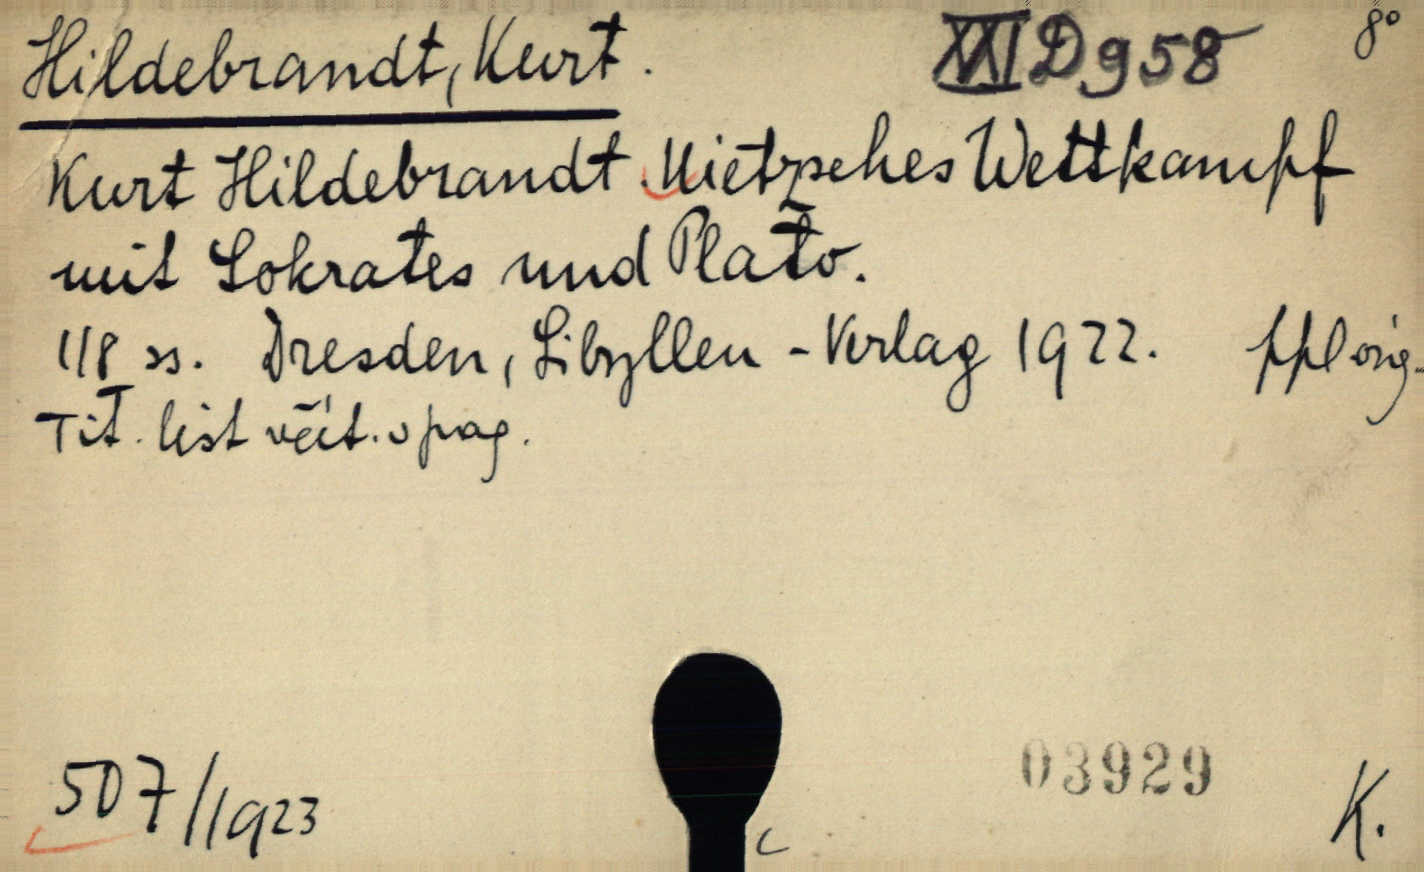 Hildebrandt, Kurt. XXI D 958 8°
Kurt Hildebrandt. Nietzsches Wettkampf
mit Sokrates und Plato.
118 ss. Dresden, Sibyllen-Verlag 1922. ppl orig.
Tit. list včít. v pag.
507/1923
03929
K.